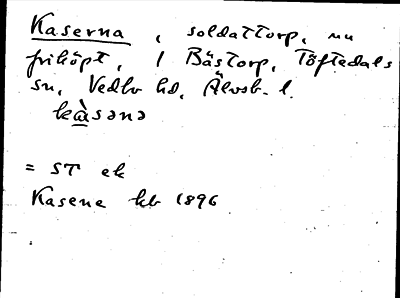 Kaserna, soldattorp, nu
friköpt, i Bästorp, Töftedals
sn, Vedbo hd, Älvsb. l.
kàsənə
= ST ek
Kasene kb 1896